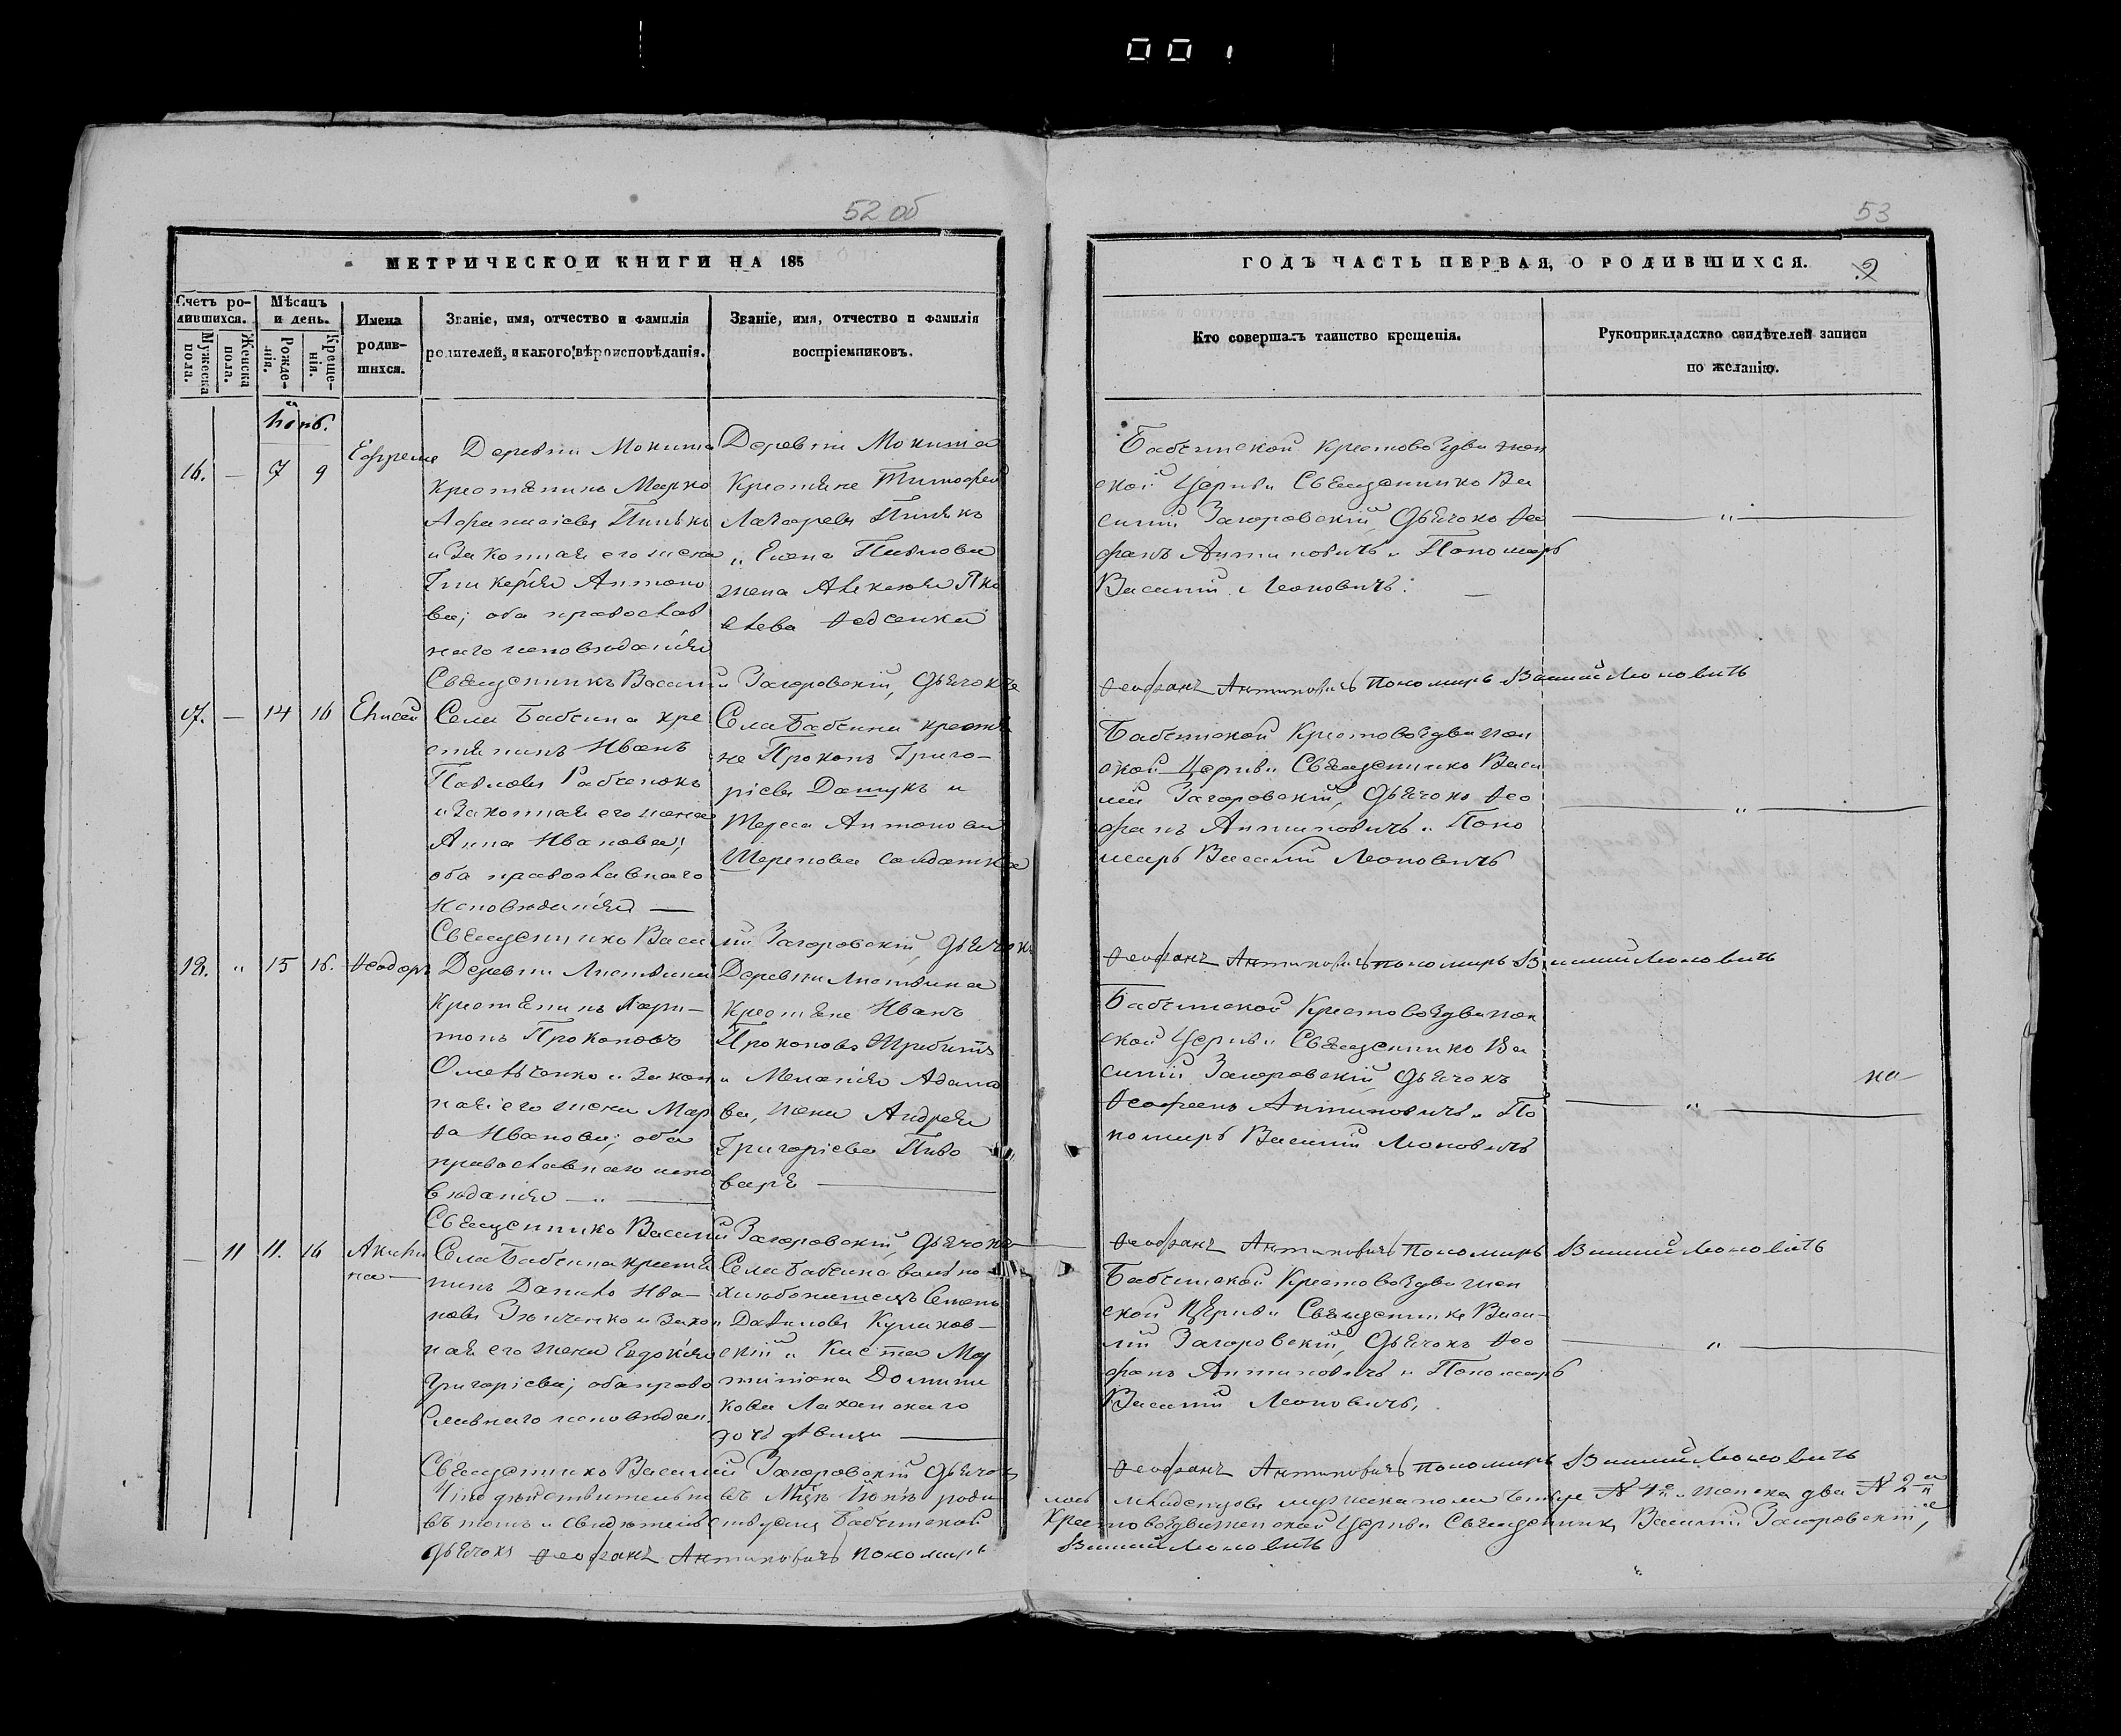 001
52 об
53
МЕТРИЧЕСКОЙ КНИГИ НА 185
ГОДЪ ЧАСТЬ ПЕРВАЯ, О РОДИВШИХСЯ.
Счетъ ро-
дившихся.
Мужеска пола.
Женска пола.
Мѣсяцъ
и день.
Рожде-
нія.
Креще-
нія.
Имена
родив-
шихся.
Званіе, имя, отчество и фамилія
родителей, и какого вѣроисповѣданія.
Званіе, имя, отчество и фамилія
воспріемниковъ.
Кто совершалъ таинство крещенія.
Рукоприкладство свидѣтелей записи
по желанію.
16. — 7 9
Ефремъ
Деревни
Крестянинъ Марко
и законная его жена
Антоно
ва; оба православ
наго исповѣданія
Деревни
Крестяне Тимофей
и Елена Павлова
жена Алексѣя Яко
влева
Бабчинской Крестовоздвижен
ской Церкви Священникъ Ва
силій Загоровскій, Дьячокъ Ѳео
фанъ Антиповичъ и Пономарь
Василій Леоновичъ.
Священникъ Василій Загоровскій, Дьячокъ
Ѳеофанъ Антиповичъ Пономарь Василий Леоновичъ
17. — 14 16 Елисей
Села Бабчина кре
стянинъ Иванъ
Павловъ Рабченокъ
и законная его жена
Анна Иванова;
оба православнаго
исповѣданія —
Села Бабчина крестя
не Прокопъ Григо-
ріевъ Дашукъ и
Антонова
солдатка
Бабчинской Крестовоздвижен
ской Церкви Священникъ Васи
лій Загоровскій, Дьячокъ Ѳео
фанъ Антиповичъ и Поно
марь Василій Леоновичъ
Священникъ Василій Загоровскій, Дьячокъ
Ѳеофанъ Антиповичъ пономарь Василий Леоновичъ
18. " 15 16. Ѳеодоръ
Деревни Листвина
Крестянинъ Хари-
тонъ Прокоповъ
и закон
ная его жена Мар
ѳа Иванова; оба
православнаго испо
вѣданія — " —
Деревни Листвина
Крестяне Иванъ
Прокоповъ
и Меланія Адамо
ва, жена Андрея
Григоріева Пиво
варъ —
Бабчинской Крестовоздвижен
ской Церкви Священникъ Ва
силій Загоровскій, Дьячокъ
Ѳеофанъ Антиповичъ и По
номарь Василій Леоновичъ
Священникъ Василій Загоровскій, Дьячокъ
Ѳеофанъ Антиповичъ пономарь Василий Леоновичъ
— 11 11. 16 Акили
на —
Села Бабчина крестя
нинъ Данило Ива-
новъ и закон
ная его жена Евдокія
Григоріева; оба право
славнаго исповѣдан.
Села Бабчина
Семенъ
Даниловъ Куликов-
скій и
дочь дѣвица —
Бабчинской Крестовоздвижен
ской Церкви Священникъ Васи-
лій Загоровскій, Дьячокъ Ѳео
фанъ Антиповичъ и Пономарь
Василій Леоновичъ.
Священникъ Василій Загоровскій Дьячокъ
Ѳеофанъ Антиповичъ пономарь Василий Леоновичъ
Что дѣйствительно въ Мцѣ Іюнѣ роди
лось младенцовъ мужеска пола женска два № 2
въ томъ и свидѣтельствуемъ Бабчинской
Крестовоздвиженской Церкви Священникъ Василій Загоровскій,
Дьячокъ Ѳеофанъ Антиповичъ пономарь
Василий Леоновичъ